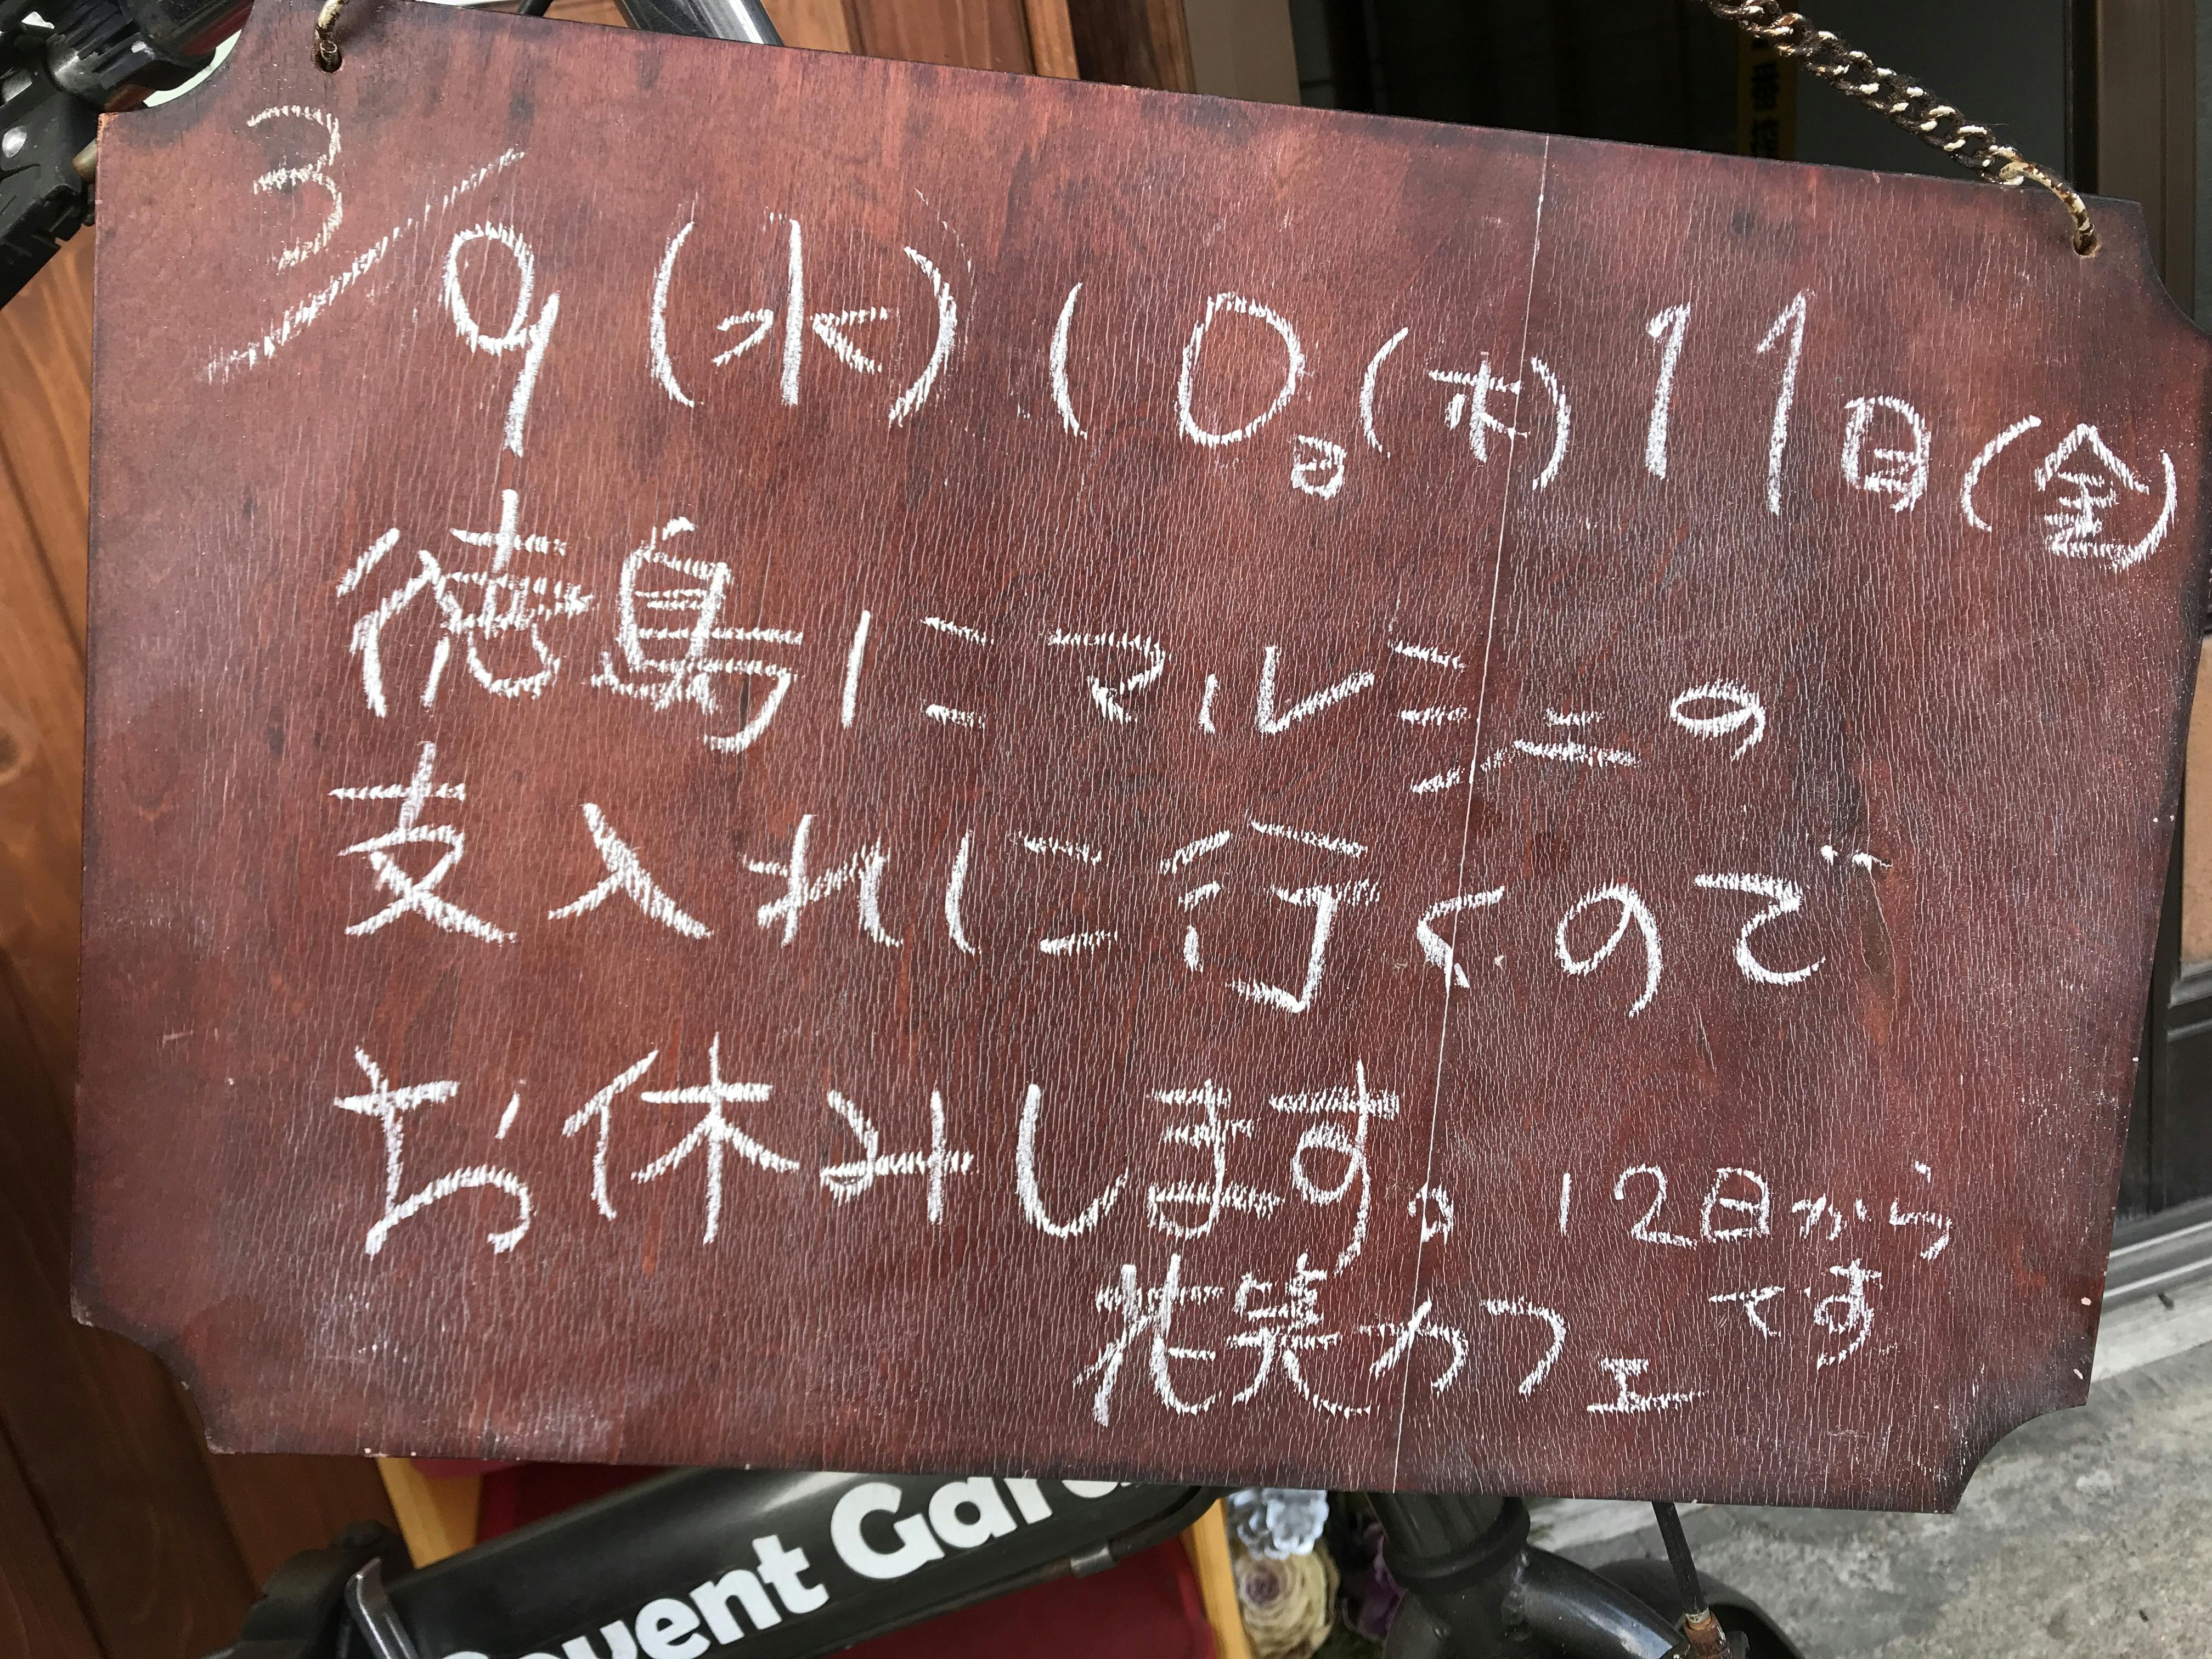 3/9(水)10日(木)11日(金)
徳島にマルミニの
支入れに行くので
お休みします。12日から
です
花笑カフェ
Covent Gard